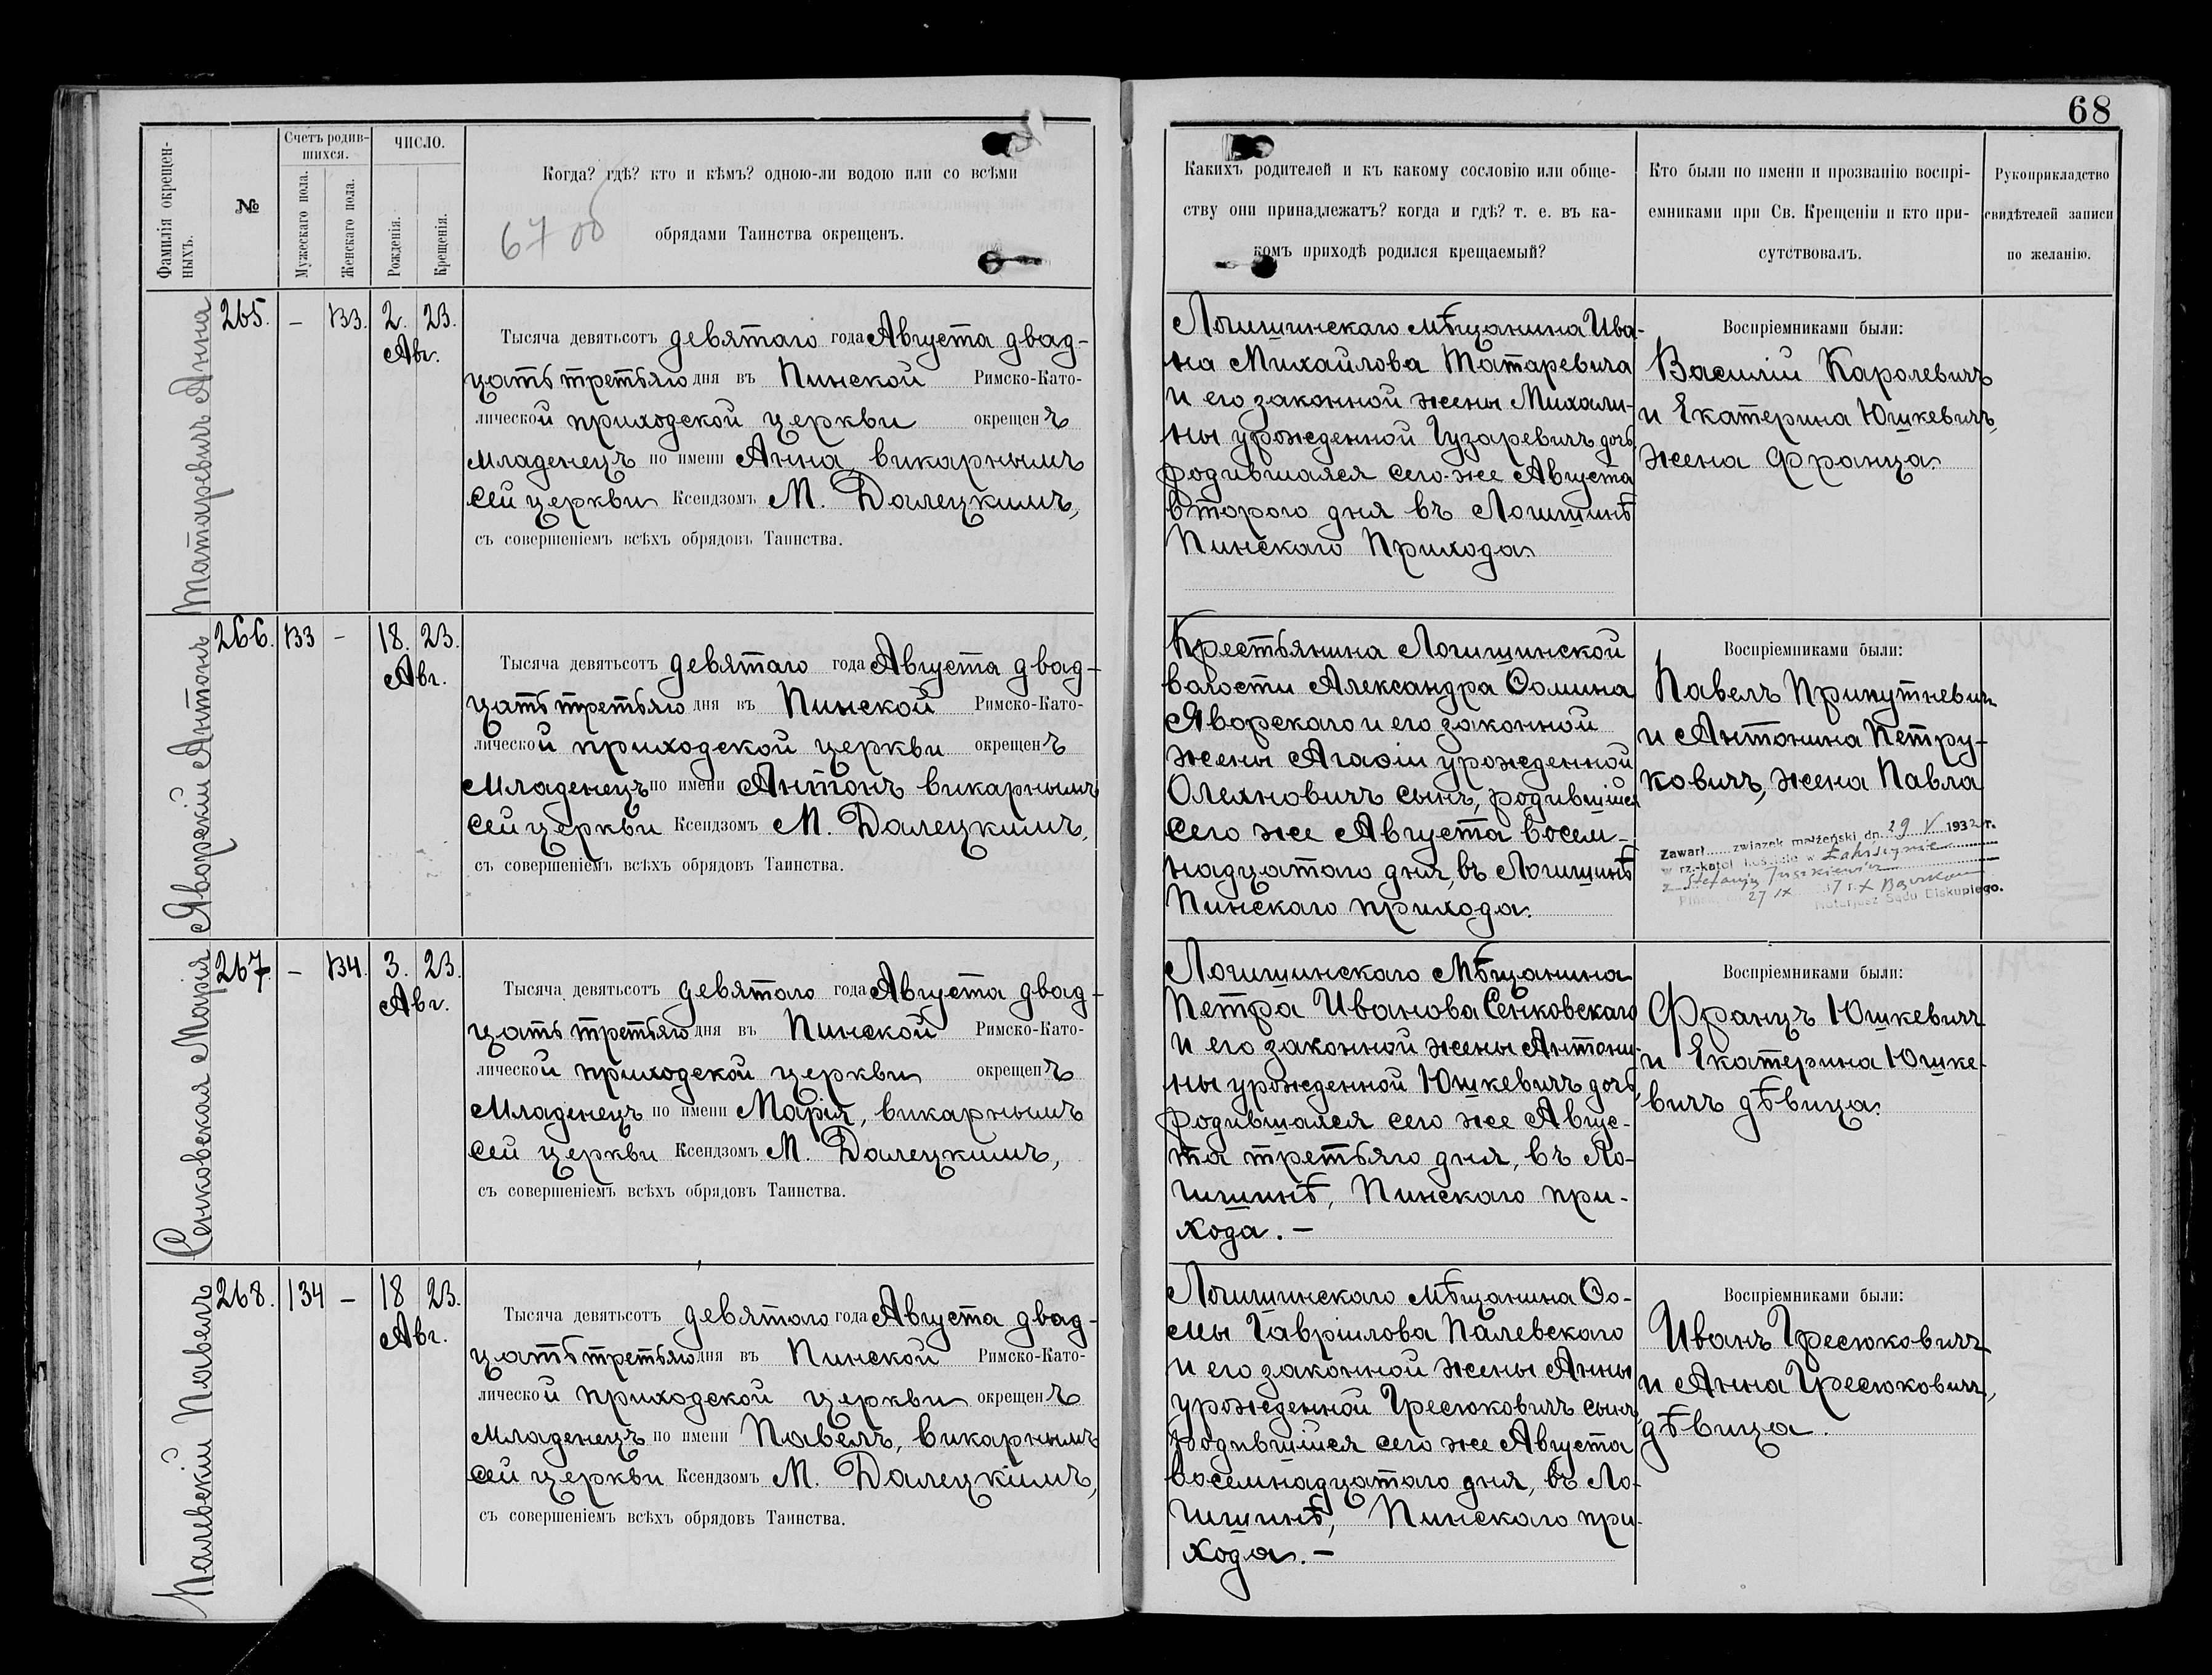 68
Фамилія окрещен-
ныхъ.
№
Счетъ родив-
шихся.
Мужескаго пола.
Женскаго пола.
ЧИСЛО.
Рожденія.
Крещенія.
Когда? гдѣ? кто и кѣмъ? одною-ли водою или со всѣми
обрядами Таинства окрещенъ.
6700
Какихъ родителей и къ какому сословію или обще-
ству они принадлежатъ? когда и гдѣ? т. е. въ ка-
комъ приходѣ родился крещаемый?
Кто были по имени и прозванію воспрі-
емниками при Св. Крещеніи и кто при-
сутствовалъ.
Рукоприкладство
свидѣтелей записи
по желанію.
Татаревичъ Анна
265. – 133. 2. 23.
Авг.
Тысяча девятьсотъ девятаго года Августа двад-
цать третьяго дня въ Пинской Римско-Като-
лической приходской церкви окрещенъ
Младенецъ по имени Анна, викарнымъ
сей церкви Ксендзомъ М. Далецкимъ,
съ совершеніемъ всѣхъ обрядовъ Таинства.
Логишинскаго мѣщанина Ива-
на Михайлова Татаревича
и его законной жены Михали-
ны урожденной Гузаревичъ дочь,
родившаяся сего-же Августа
второго дня въ Логишинѣ
Пинскаго Прихода.
Воспріемниками были:
Василій Каролевичъ
и Екатерина Юшкевичъ,
жена Франца.
Яворскій Антонъ
266. 133 – 18. 23.
Авг.
Тысяча девятьсотъ девятаго года Августа двад-
цать третьяго дня въ Пинской Римско-Като-
лической приходской церкви окрещенъ
Младенецъ по имени Антонъ викарнымъ
сей церкви Ксендзомъ М. Далецкимъ,
съ совершеніемъ всѣхъ обрядовъ Таинства.
Крестьянина Логишинской
волости Александра Ѳомина
Яворскаго и его законной
жены Агафіи урожденной
Олехновичъ сынъ, родившійся
сего же Августа восем-
надцатаго дня, въ Логишинѣ
Пинскаго прихода.
Воспріемниками были:
Павелъ Припутневичъ
и Антонина Петру-
ковичъ, жена Павла
Zawarł związek małżeński dn. 29 V 1932 r.
w rz.-katol. kościele w Łahiszynie
z Stefanją Juszkiewicz
Pińsk, dn. 27 IX 37 r.
Notarjusz Sądu Biskupiego.
Сенковская Марія
267. – 134. 3. 23.
Авг.
Тысяча девятьсотъ девятаго года Августа двад-
цать третьяго дня въ Пинской Римско-Като-
лической приходской церкви окрещенъ
Младенецъ по имени Марія, викарнымъ
сей церкви Ксендзомъ М. Далецкимъ,
съ совершеніемъ всѣхъ обрядовъ Таинства.
Логишинскаго Мѣщанина
Петра Иванова Сенковскаго
и его законной жены Антони-
ны урожденной Юшкевичъ дочь,
родившаяся сего же Авгус-
та третьяго дня, въ Ло-
гишинѣ, Пинскаго при-
хода. –
Воспріемниками были:
Францъ Юшкевичъ
и Екатерина Юшке-
вичъ дѣвица.
Палевскій Павелъ
268. 134 – 18 23.
Авг.
Тысяча девятьсотъ девятаго года Августа двад-
цать третьяго дня въ Пинской Римско-Като-
лической приходской церкви окрещенъ
Младенецъ по имени Павелъ, викарнымъ
сей церкви Ксендзомъ М. Далецкимъ,
съ совершеніемъ всѣхъ обрядовъ Таинства.
Логишинскаго мѣщанина Ѳо-
мы Гавріилова Палевскаго
и его законной жены Анны
урожденной Гресюковичъ сынъ,
родившійся сего же Августа
восемнадцатаго дня, въ Ло-
гишинѣ, Пинскаго при-
хода. –
Воспріемниками были:
Иванъ Гресюковичъ
и Анна Гресюковичъ,
дѣвица.